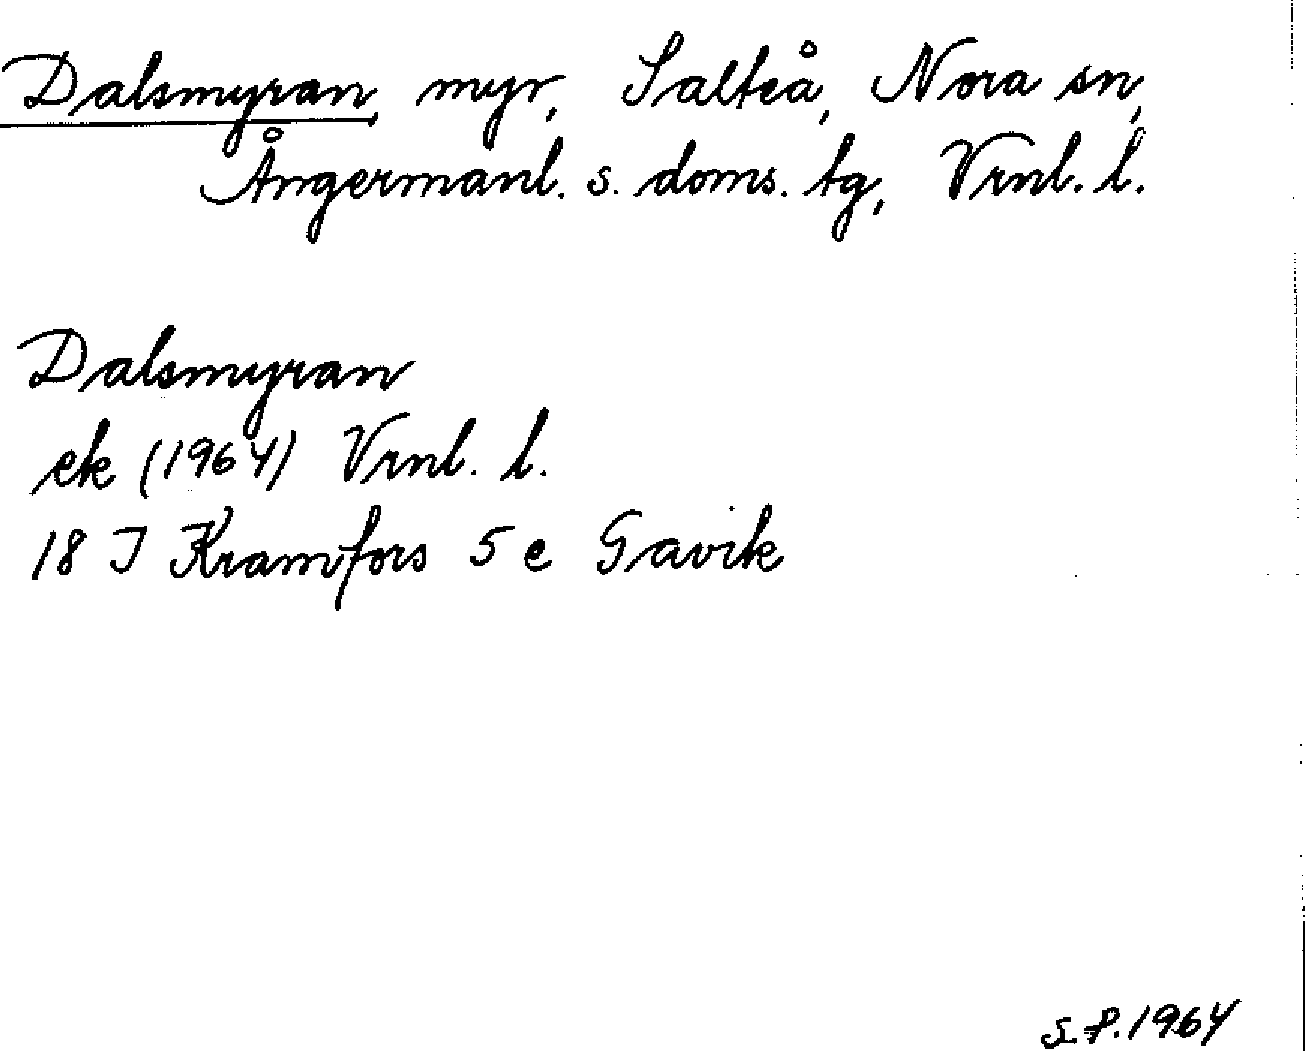 Dalsmyran, myr, Salteå, Nora sn,
Ångermanl. s. doms. tg, Vrnl. l.
Dalsmyran
ek (1964) Vrnl. l.
18 I Kramfors 5 e Gavik
S.P. 1964